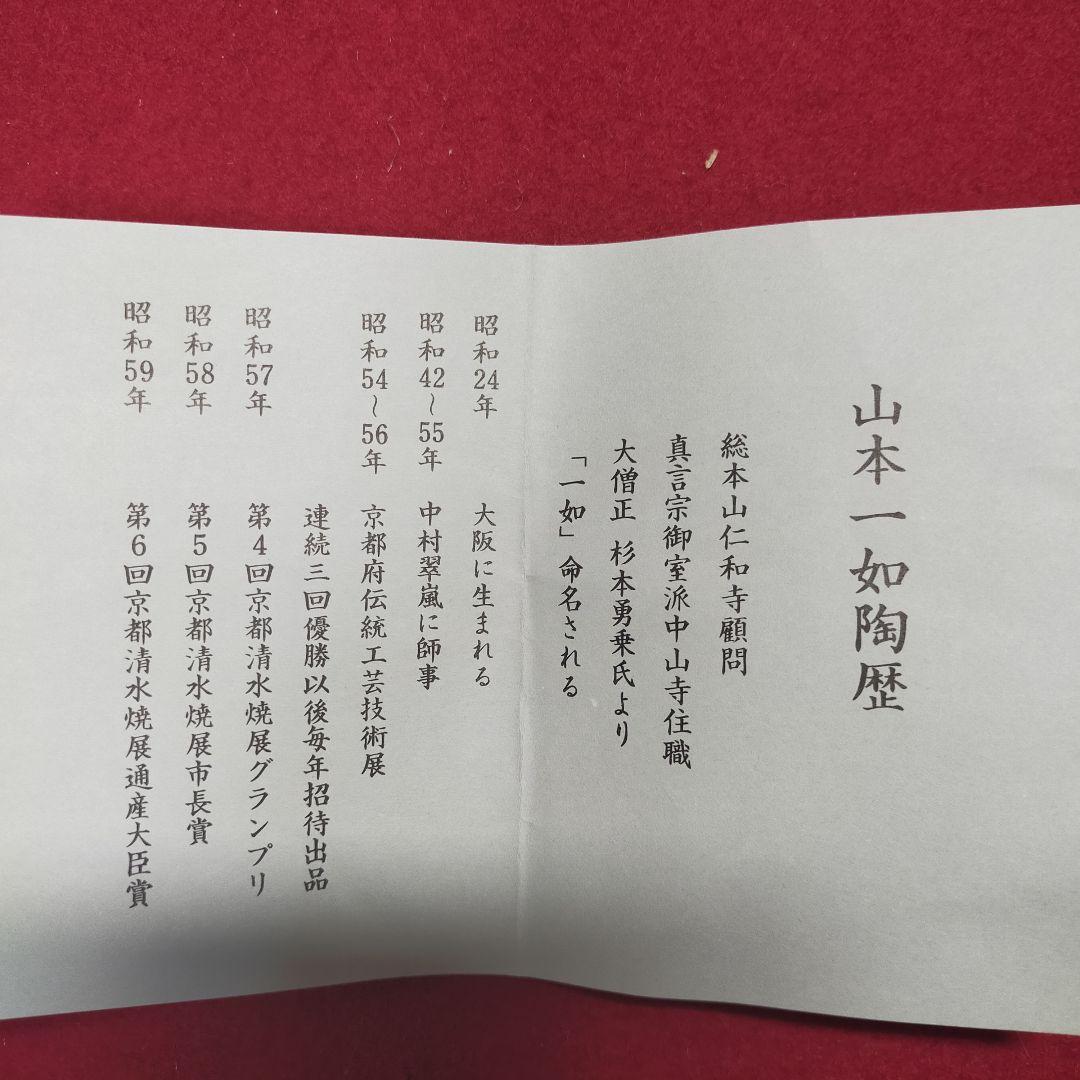 山本一如陶歴
総本山仁和寺顧問
真言宗御室派中山寺住職
大僧正 杉本勇乗氏より
「一如」命名される
昭和24年 大阪に生まれる
昭和42〜55年 中村翠嵐に師事
昭和54〜56年 京都府伝統工芸技術展
連続三回優勝以後毎年招待出品
昭和57年 第4回京都清水焼展グランプリ
昭和58年 第5回京都清水焼展市長賞
昭和59年 第6回京都清水焼展通産大臣賞